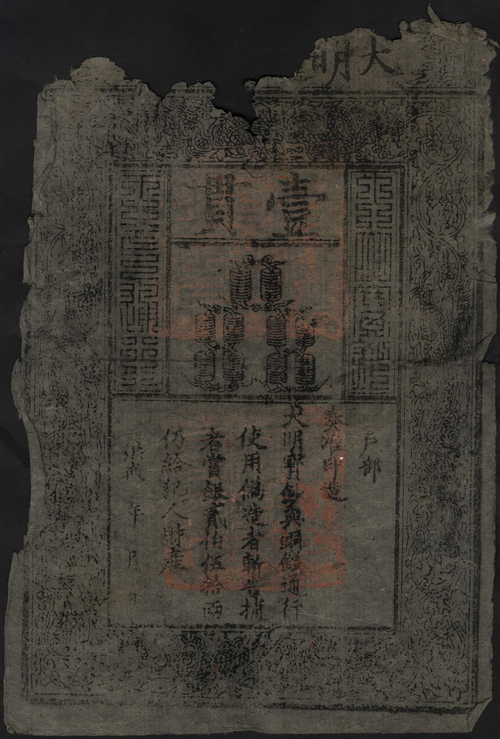 大明
壹貫
大明寶鈔
天下通行
戶部
奏准印造
大明寶鈔與銅錢通行
使用偽造者斬告捕
者賞銀貳伯伍拾兩
仍給犯人財產
洪武 年 月 日